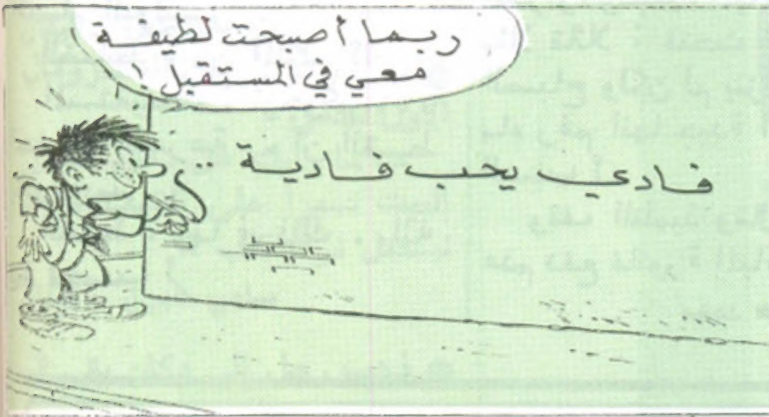 ربما أصبحت لطيفة
معي في المستقبل !
فادي يحب فادية ..